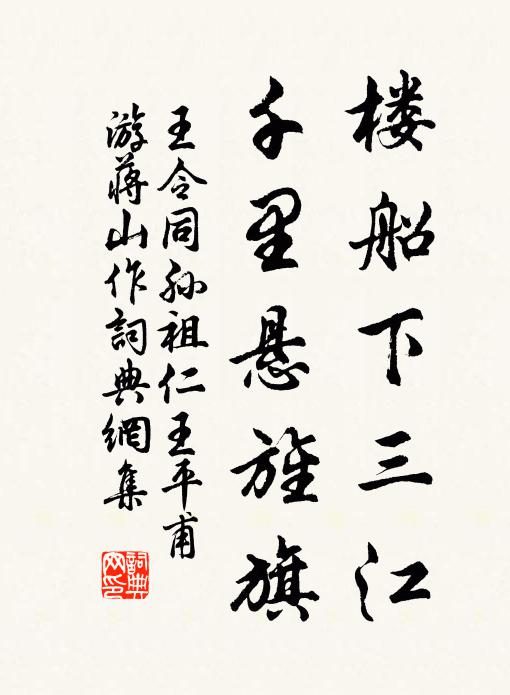 楼船下三江
千里悬旌旗
王令同孙祖仁王平甫
游蒋山作詞典網集
詞典網印